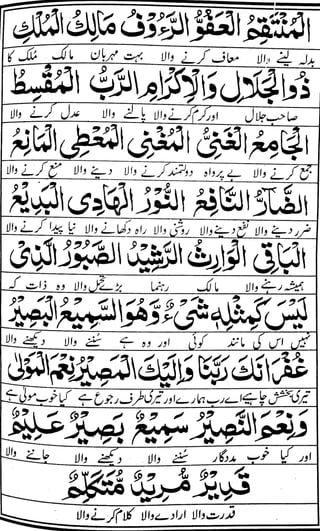 اَلْمُنْتَقِمُ الْعَفُوُّ الرَّءُوْفُ مَالِكُ الْمُلْكِ
بدلہ لینے والا معاف کرنے والا بہت مہربان مالک ملک کا
ذُو الْجَلَالِ وَالْاِكْرَامِ الرَّبُّ الْمُقْسِطُ
صاحب جلال اور کرم کرنے والا پالنے والا عدل کرنے والا
الْجَامِعُ الْغَنِيُّ الْمُغْنِي الْمُعْطِي الْمَانِعُ
جمع کرنے والا بے پرواہ دولتمند کرنے والا دینے والا منع کرنے والا
الضَّارُّ النَّافِعُ النُّوْرُ الْهَادِي الْبَدِيْعُ
ضرر دینے والا نفع دینے والا روشنی والا راہ دکھانے والا نیا پیدا کرنے والا
الْبَاقِي الْوَارِثُ الرَّشِيْدُ الصَّبُوْرُ الَّذِيْ
ہمیشہ رہنے والا مالک رہنما بڑے تحمل والا وہ ذات کہ
لَيْسَ كَمِثْلِهٖ شَيْءٌ وَّهُوَ السَّمِيْعُ الْبَصِيْرُ
نہیں اس کی مانند کوئی اور وہ ہے سننے والا دیکھنے والا
غُفْرَانَكَ رَبَّنَا وَاِلَيْكَ الْمَصِيْرُ نِعْمَ الْمَوْلٰى
تیری بخشش چاہیے اے رب ہمارے اور تیری طرف رجوع ہے کیا خوب مولیٰ ہے
وَنِعْمَ النَّصِيْرُ سَمِيْعٌ بَصِيْرٌ عَلِيْمٌ
اور کیا خوب مددگار سننے والا دیکھنے والا جاننے والا
قَدِيْرٌ مُّرِيْدٌ مُّتَكَلِّمٌ
قدرت والا ارادے والا کلام کرنے والا